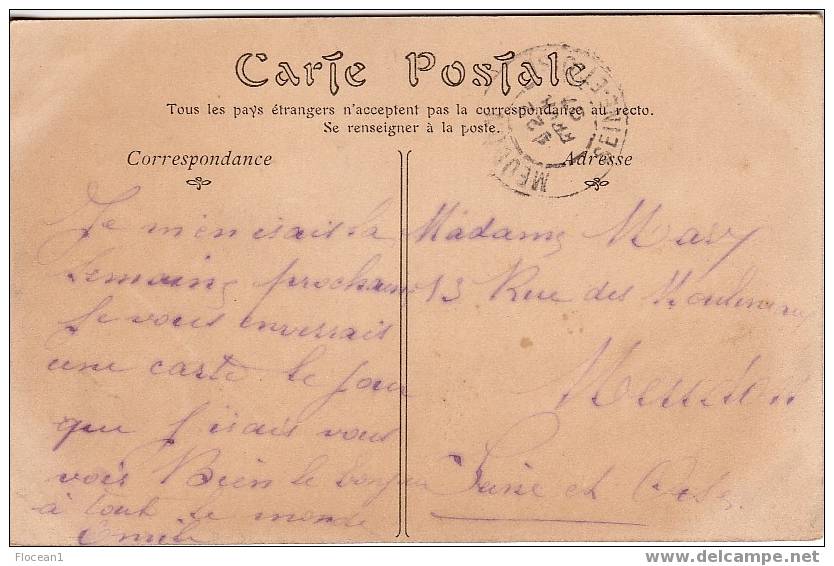 Carte Postale
Tous les pays étrangers n'acceptent pas la correspondance au recto.
Se renseigner à la poste.
Correspondance
Adresse
MEUDON
SEINE-ET-OISE
Je m'en irais la
semaine prochaine
Je vous enverrais
une carte le jour
que j'irais vous
vois Bien le bonjour
à tout le monde
Emile
Madame Mary
13 Rue des Moulineaux
Meudon
Seine et Oise
Flocean1
www.delcampe.net